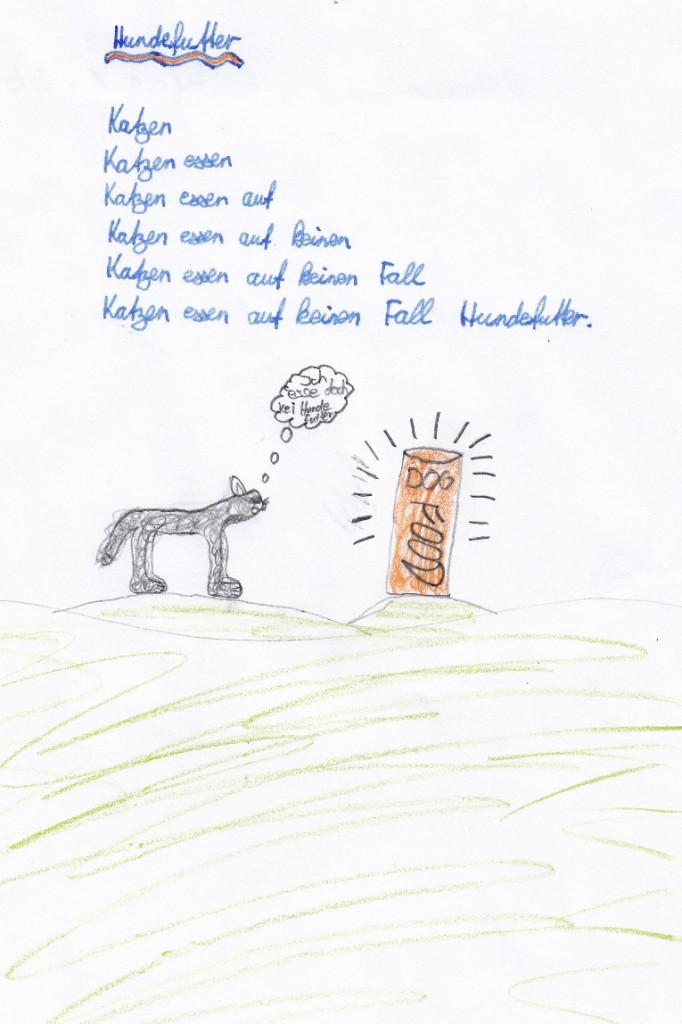 Hundefutter
Katzen
Katzen essen
Katzen essen auf
Katzen essen auf keinen
Katzen essen auf keinen Fall
Katzen essen auf keinen Fall Hundefutter.
Ich
esse doch
kei Hunde
futter
DOG